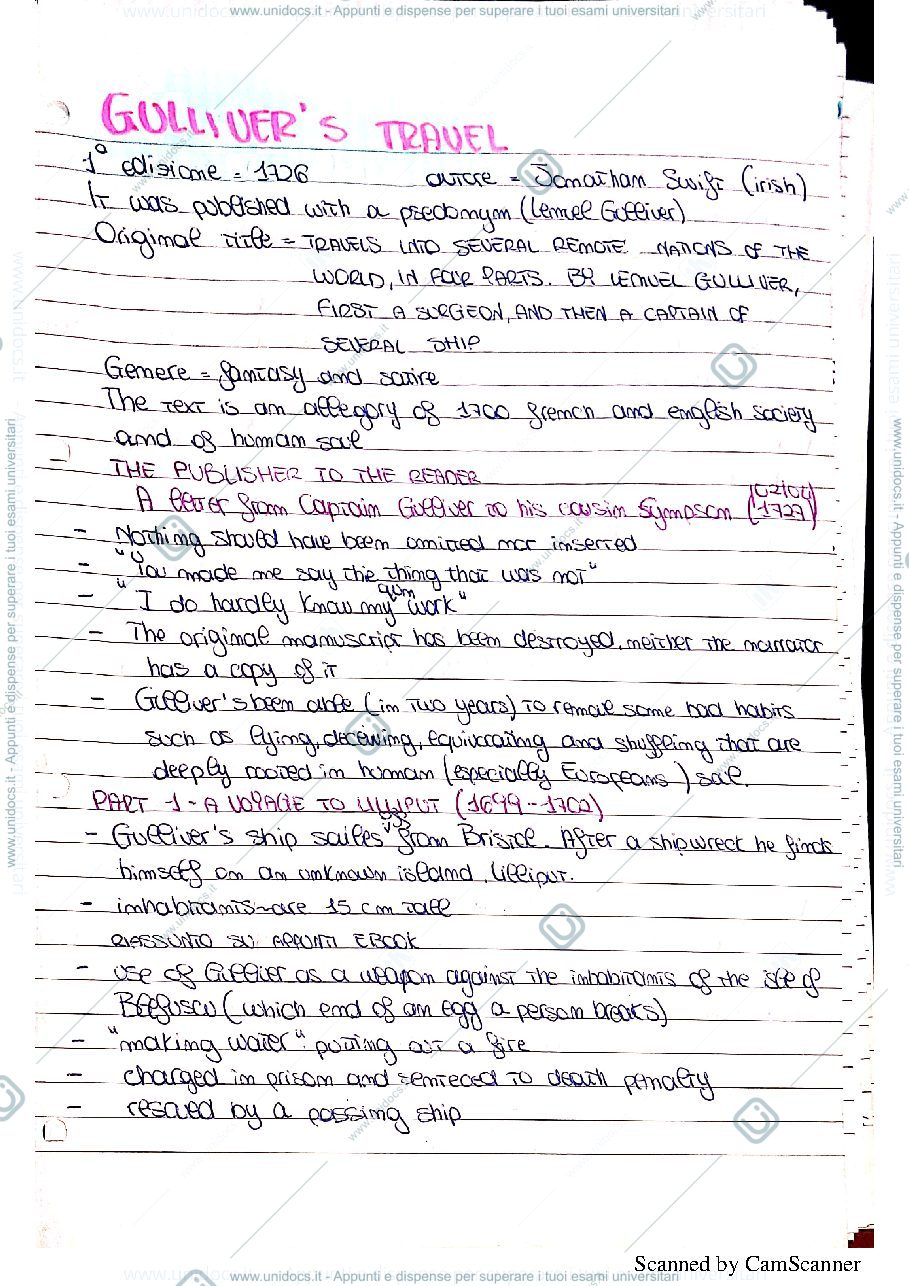 www.unidocs.it - Appunti e dispense per superare i tuoi esami universitari
GULLIVER'S TRAVEL
1° edizione = 1726 autore = Jonathan Swift (irish)
It was published with a psedonym (Lemel Gulliver)
Original title = TRAVELS INTO SEVERAL REMOTE NATIONS OF THE
WORLD, IN FOUR PARTS. BY LEMUEL GULLIVER,
FIRST A SURGEON, AND THEN A CAPTAIN OF
SEVERAL SHIP
Genere = fantasy and satire
The text is an allegory of 1700 french and english society
and of human soul
THE PUBLISHER TO THE READER
A letter from Captain Gulliver to his cousin Sympson (02/04/1727)
- Nothing should have been omitted nor inserted
- "You made me say the thing that was not"
- "I do hardly know my own work"
- The original manuscript has been destroyed, neither the narrator
has a copy of it
- Gulliver's been able (in two years) to remove some bad habits
such as lying, deceiving, equivocating and shuffling that are
deeply rooted in human (especially Europeans) soul.
PART 1 - A VOYAGE TO LILLIPUT (1699-1702)
- Gulliver's ship sailes from Bristol. After a shipwreck he finds
himself on an unknown island, Lilliput.
- inhabitants are 15 cm tall
RIASSUNTO SU APPUNTI EBOOK
- use of Gulliver as a weapon against the inhabitants of the isle of
Blefuscu (which end of an egg a person breaks)
- "making water": putting out a fire
- charged in prison and senteced to death penalty
- rescued by a passing ship
Scanned by CamScanner
www.unidocs.it - Appunti e dispense per superare i tuoi esami universitari